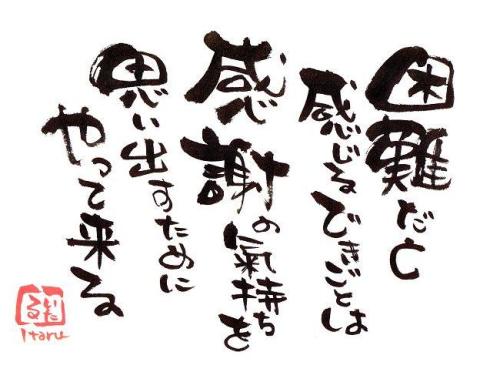 困難だと
感じるできごとは
感謝の氣持ちを
思い出すために
やって来る
Itaru